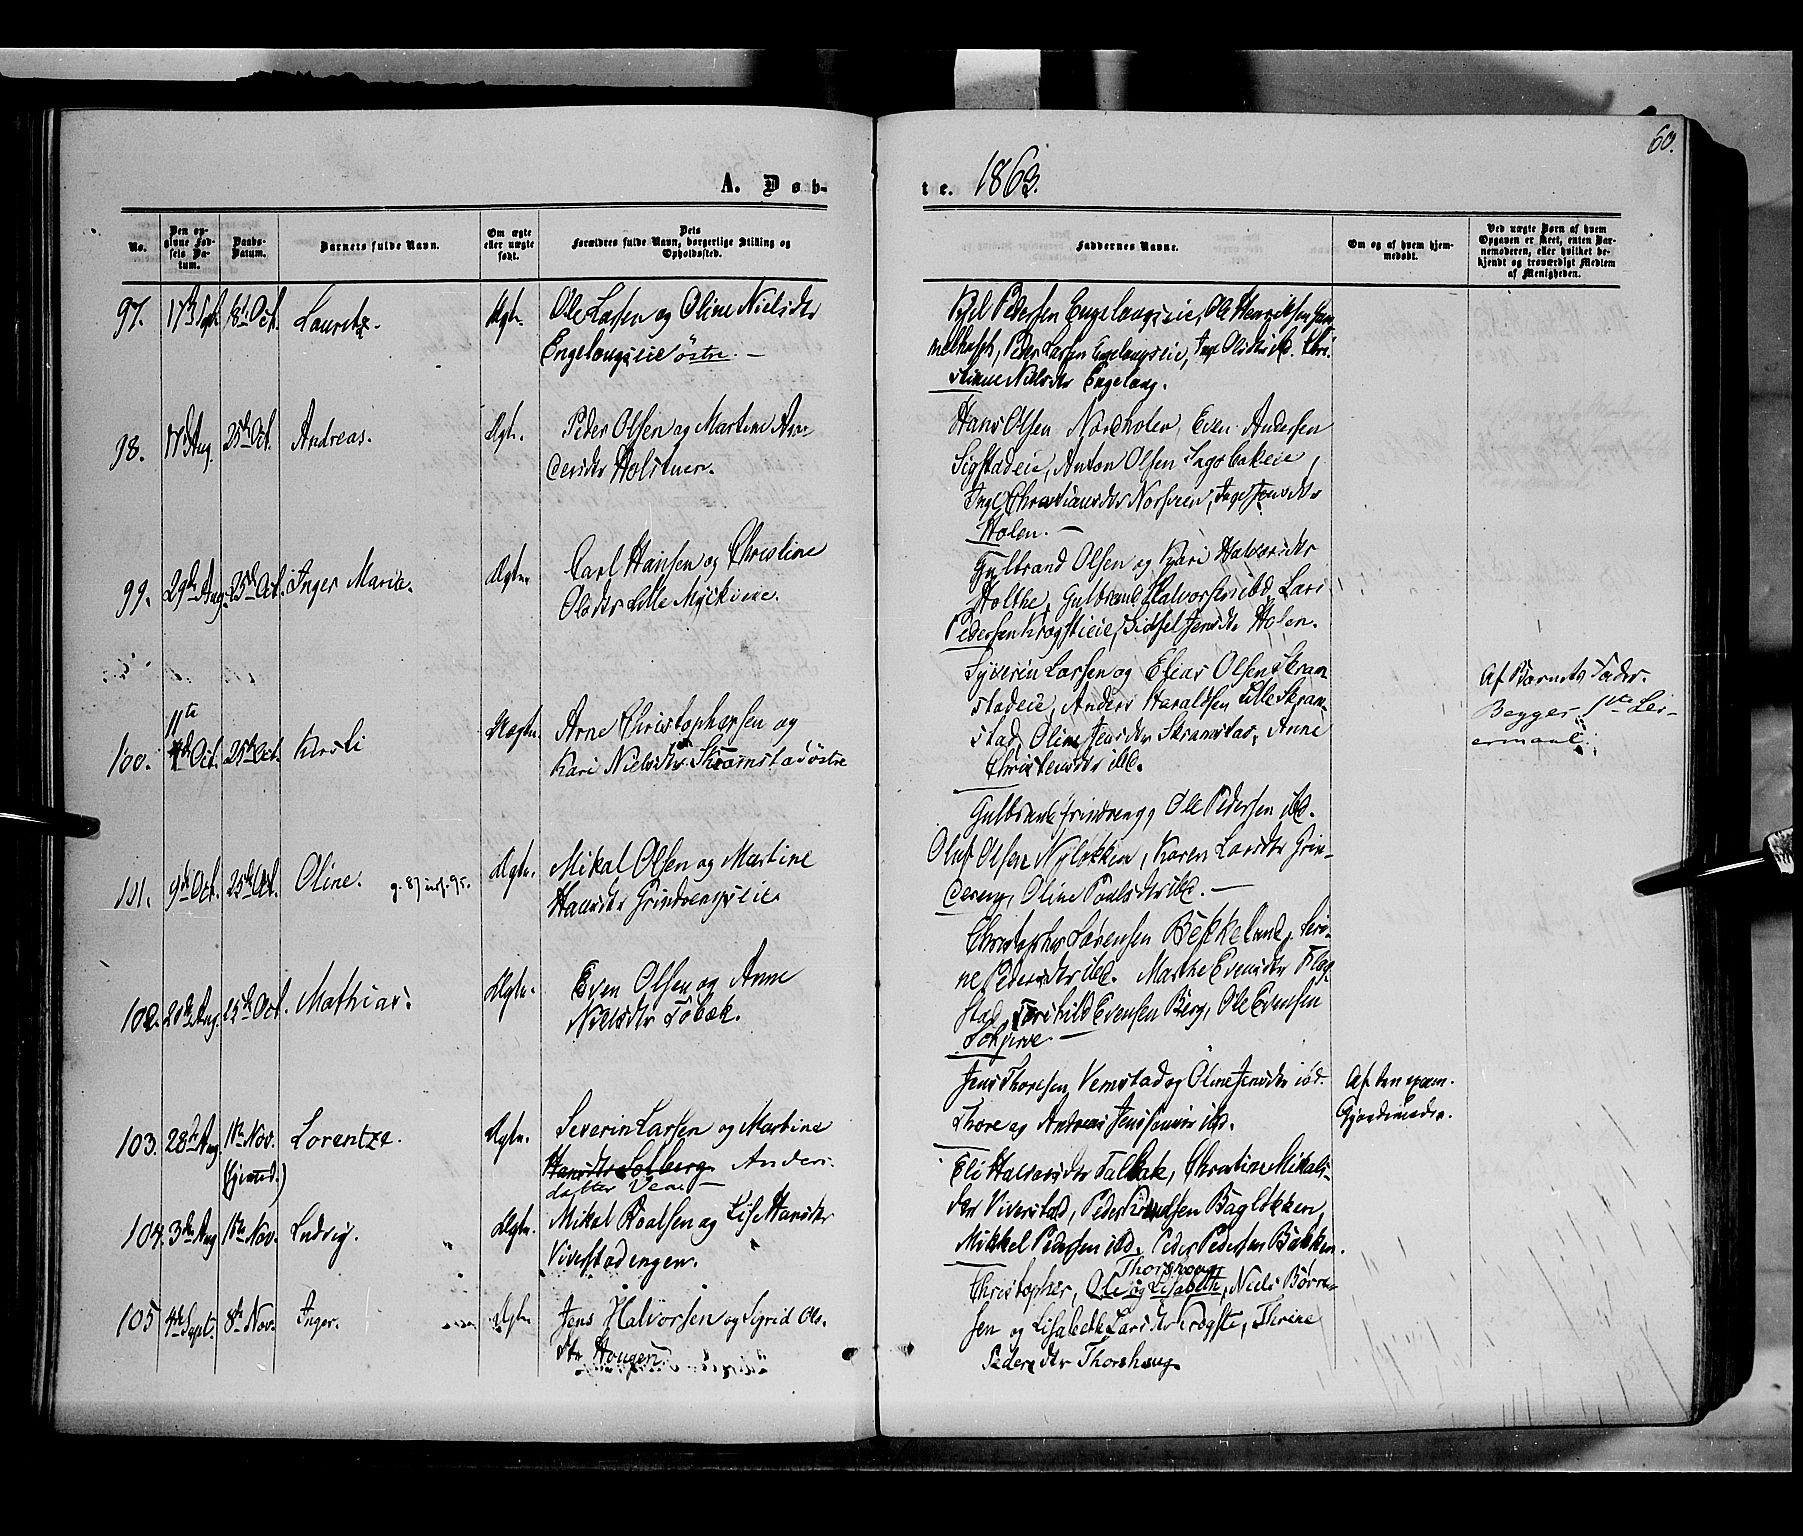 60.
A. Døb-
te. 1863.
No.
Den op-
givne Fød-
sels Da-
tum.
Daabs-
Datum.
Barnets fulde Navn.
Om ægte
eller uægte
født.
Dets
Forældres fulde Navn, borgerlige Stilling og
Opholdssted.
Faddernes Navne.
Om og af hvem hjem-
medøbt.
Ved uægte Børn af hvem
Opgaven er skeet, enten Bar-
nemoderen, eller hvilket be-
kjendt og troværdigt Medlem
af Menigheden.
97. 17de Sept. 18de Oct. Lauritz. Ægte. Ole Larsen og Oline Nielsdtr
Engelaugseie østre. —
Pedersen Engelaugseie, Ole Henriksen
Peder Larsen Engelaugseie, Inge Olsdtr ibd. Chri-
stiane Nielsdtr Engelaug.
98. Aug. 25de Oct. Andreas. Ægte. Peder Olsen og Martine An-
dersdtr Holstuen.
Hans Olsen Nordholen, Even Andersen
Sigstadeie, Anton Olsen
Inge Christiansdtr Norsveen, Inger Jensdtr
Holen. —
99. 29de Aug. 25de Oct. Inger Marie. Ægte. Carl Hansen og Christine
Olsdtr Lille
Gulbrand Olsen og Kari Halvorsdtr
Holthe, Gulbrand Halvorsen ibd, Lars
Pedersen Krogstieie, Sidsel Jensdtr Holen.
100. 11te Oct. 25de Oct. Kirsti Uægte. Arne Christophersen og
Kari Nielsdtr Skramstad østre
Syverin Larsen og Elias Olsen Skram-
stadeie, Anders Haraldsen Lille Skram-
stad, Oline Jensdtr Skramstad, Anne
Christensdtr ibd.
Af Barnets Fader.
Begges 1ste Lei-
ermaal.
101. 9de Oct. 25de Oct. Oline. g. 87 inf. 95. Ægte. Mikal Olsen og Martine
Hansdtr Grindvengseie
Gulbrand Grindveng, Ole Pedersen ibd.
Oluf Olsen Nyløkken, Karen Larsdtr Grin-
deveng, Oline Paulsdtr ibd. —
102. Aug. 25de Oct. Mathias. Ægte. Even Olsen og Anne
Nielsdtr
Christopher Sørensen Bekkelund, Seri-
ne Pedersdtr ibd. Marthe Evensdtr Flag-
stad, Torihild Evensen Berg, Ole Evensen
103. 28de Aug. 1ste Nov.
(Hjemd.) Lorentze. Ægte. Severin Larsen og Martine
Hansdtr Solberg Anders-
datter
Jens Thoresen Vemstad og Oline Jensdtr ibd.
Thore og Andreas Jenssønner ibd.
Af den exam.
Gjordemoder.
104. 3die Aug. 1ste Nov. Ludvig. Ægte. Mikal Roalsen og Lise Hansdtr
Vivestadengen.
Eli Halvorsdtr Christine Mikals-
dtr Vivestad, Peder Knudsen Bagløkken,
Mikkel Pedersen ibd. Peder Pedersen Bakken.
105 4de Sept. 8de Nov. Inger. Ægte. Jens Halvorsen og Sigrid Ols-
dtr Haugen.
Thorshoug
Christopher, Ole og Lisabeth, Niels Børre-
sen og Lisabeth Larsdtr Krogste, Thrine
Pedersdtr Thorshaug